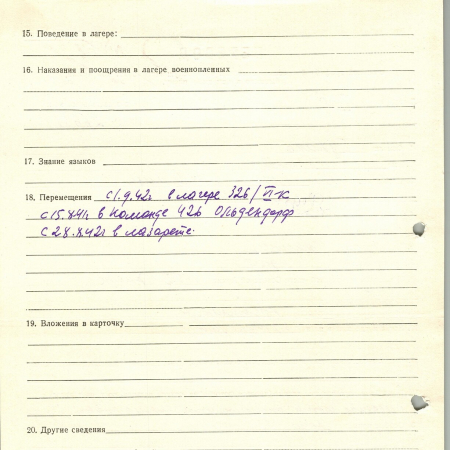 15. Поведение в лагере:
16. Наказания и поощрения в лагере военнопленных
17. Знание языков
18. Перемещения с 1.9.42г в лагере 326/VI-К
с 15.X.41г в команде 426 Ольдендорф
с 28.X.42г в лазарете.
19. Вложения в карточку
20. Другие сведения